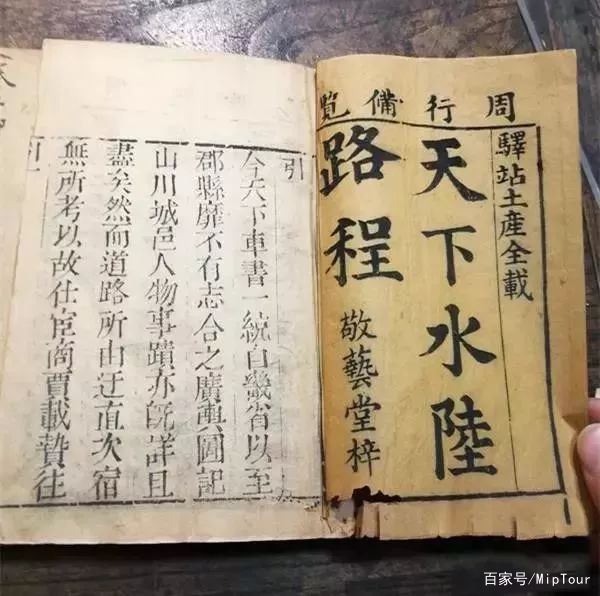 周行備覧
驛站土產全載
天下水陸
路程
敬藝堂梓
引
今天下車書一統自畿省以至
郡縣靡不有志合之廣輿圖記
山川城邑人物事蹟亦旣詳且
盡矣然而道路所由迂直次宿
無所考以故仕宦商賈載贄往
百家号/MipTour